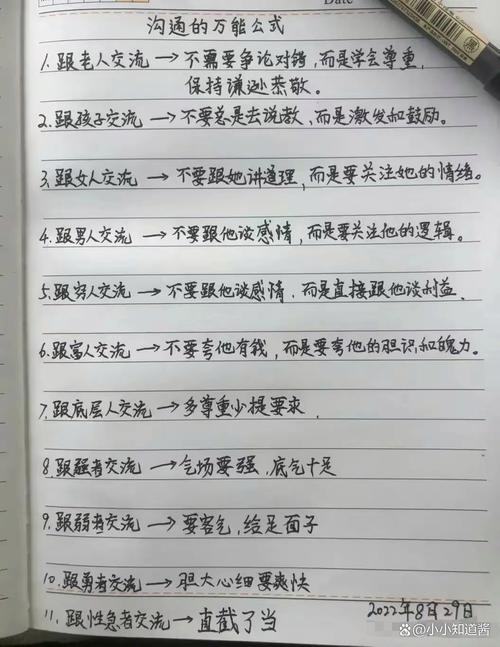 Date
沟通的万能公式
1. 跟老人交流 → 不需要争论对错,而是学会尊重,
保持谦逊恭敬。
2. 跟孩子交流 → 不要总是去说教,而是激发和鼓励。
3. 跟女人交流 → 不要跟她讲道理,而是要关注她的情绪。
4. 跟男人交流 → 不要跟他谈感情,而是要关注他的逻辑。
5. 跟穷人交流 → 不要跟他谈感情,而是直接跟他谈利益.
6. 跟富人交流 → 不要夸他有钱,而是要夸他的胆识和魄力。
7. 跟底层人交流 → 多尊重少提要求.
8. 跟强者交流 → 气场要强,底气十足
9. 跟弱者交流 → 要客气,给足面子
10. 跟勇者交流 → 胆大心细要爽快
11. 跟性急者交流 → 直截了当
2022年8月29日
@小小知道酱